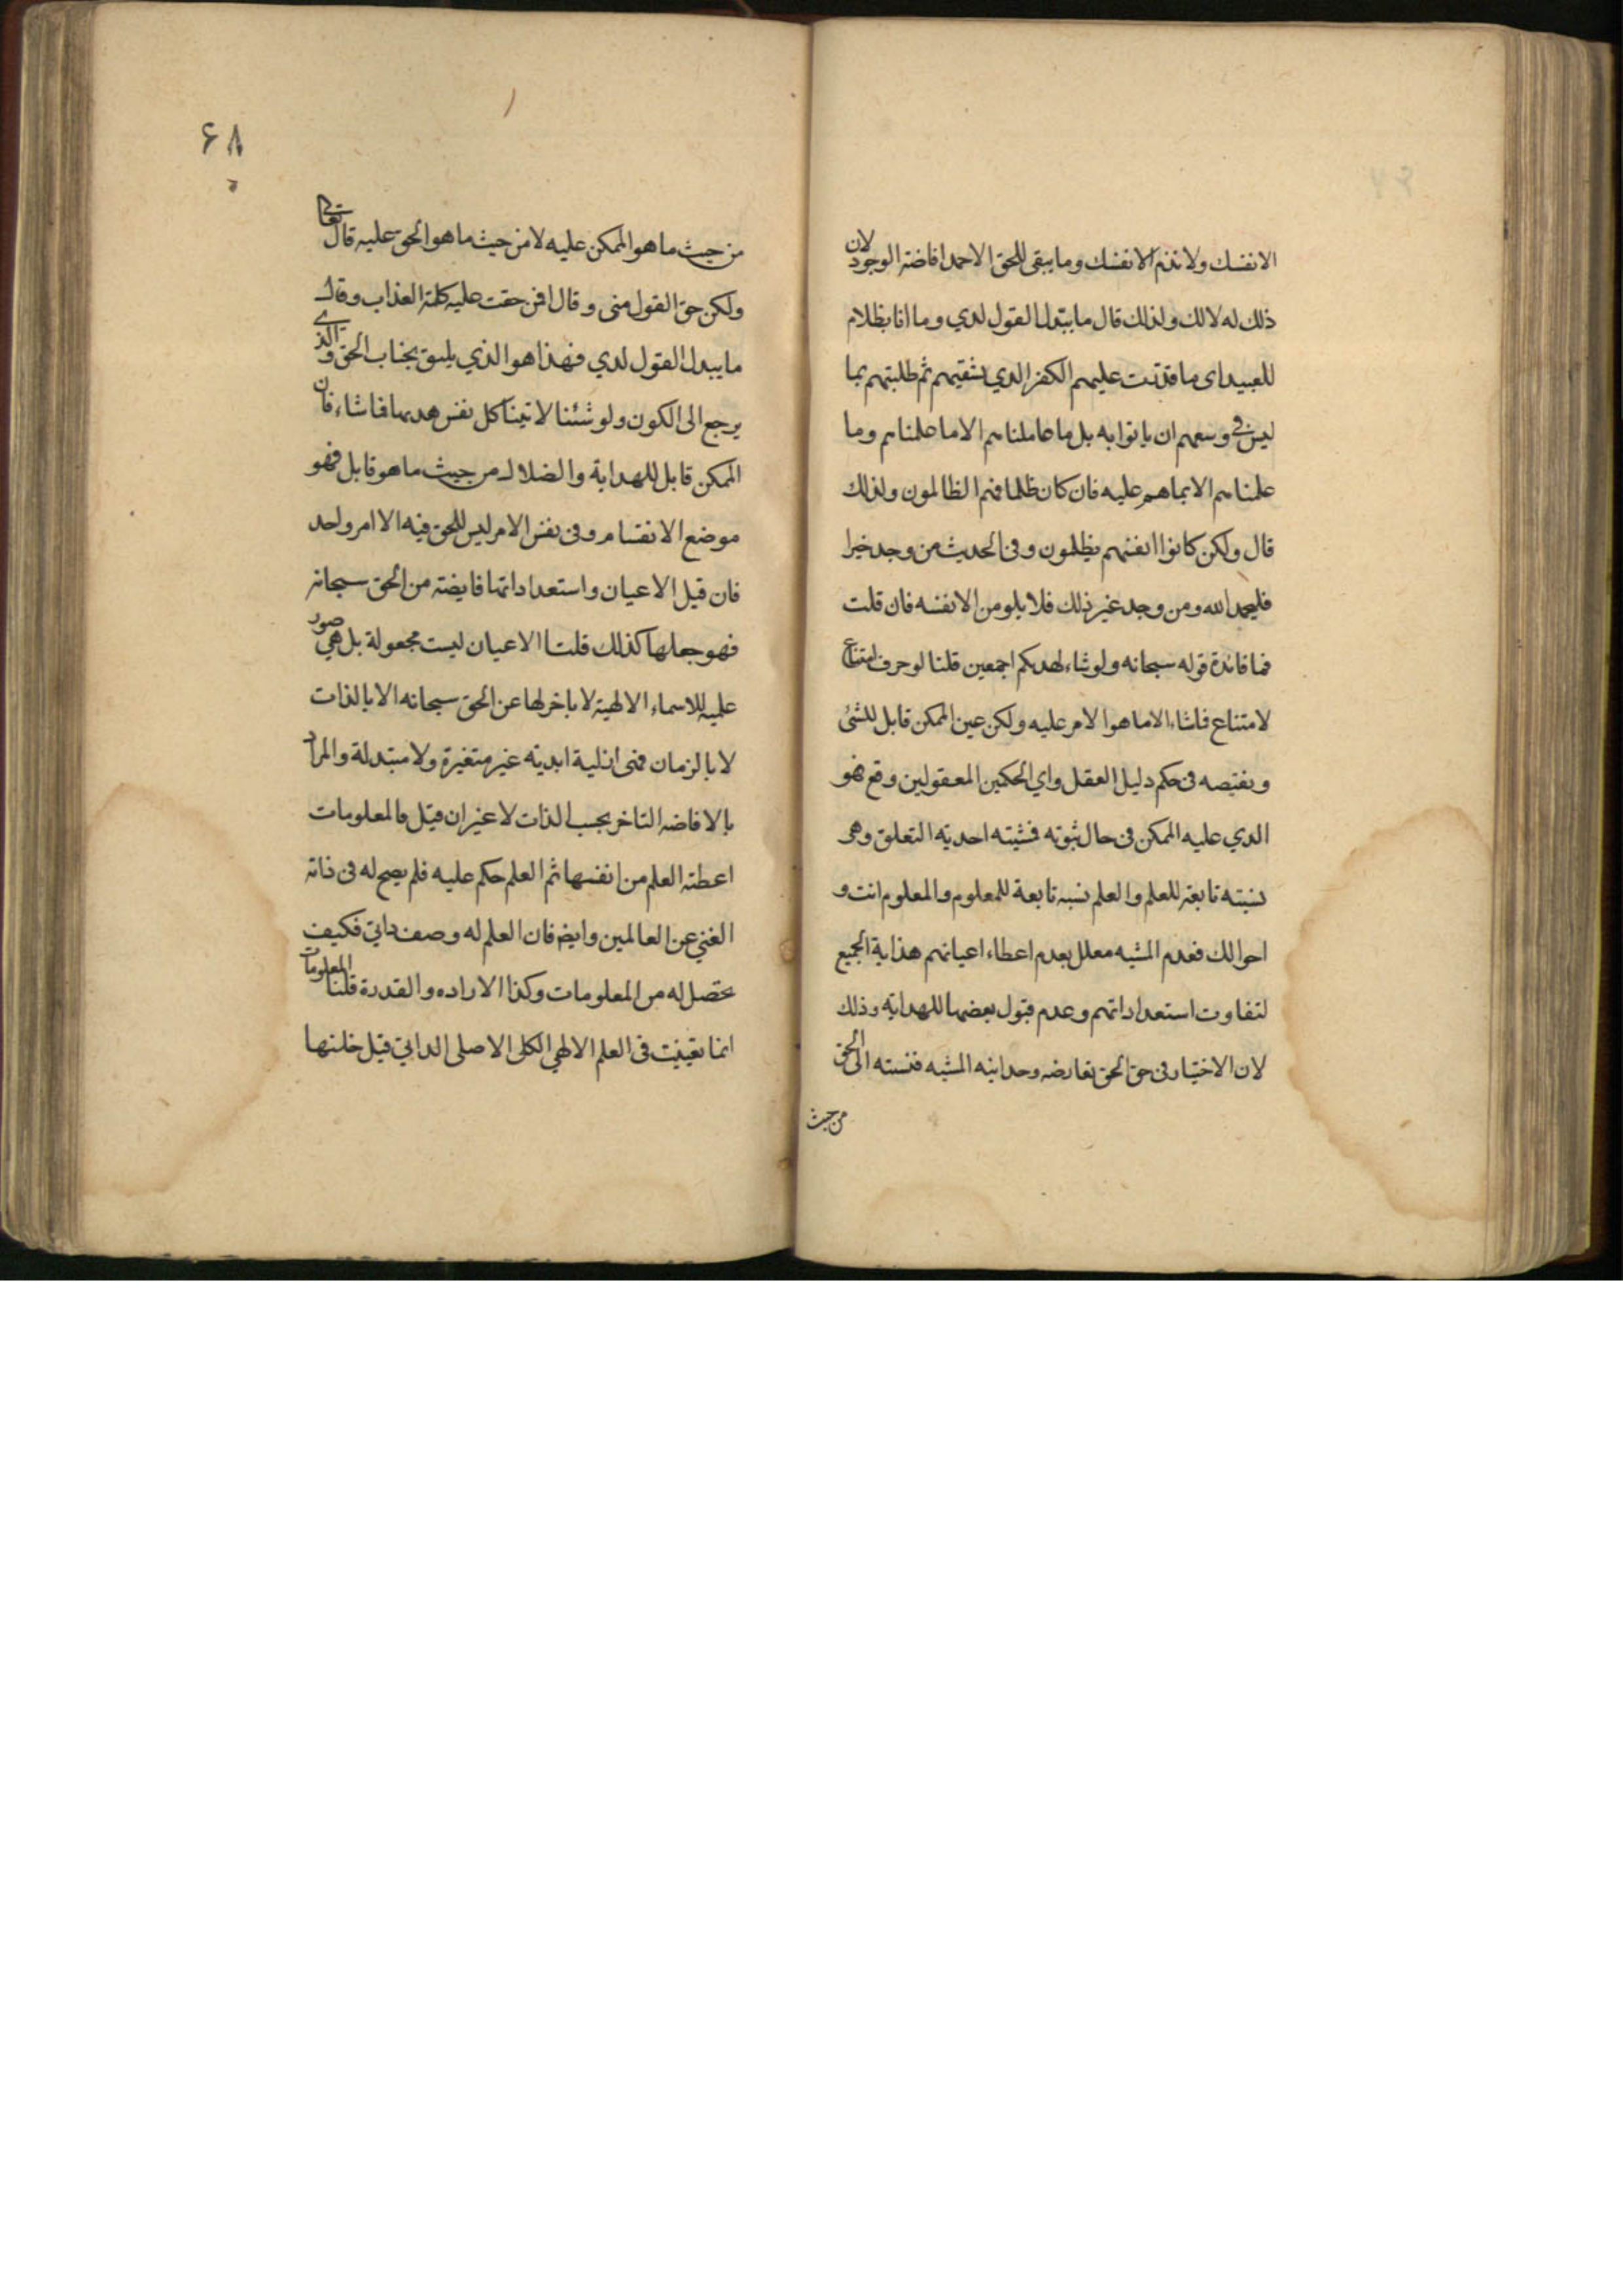 الانفسك ولا تذم الا نفسك وما يبقى للحق الا حمد افاضة الوجود لان
ذلك له لا لك ولذلك قال ما يبدل القول لدي وما انا بظلام
للعبيد اى ما قدرت عليهم الكفر الدي يشقيهم ثم طلبتهم بما
ليس في وسعهم ان ياتوا به بل ما عاملناهم الا ما علمناهم وما
علمناهم الا بما هم عليه فان كان ظلما فهم الظالمون ولذلك
قال ولكن كانوا انفسهم يظلمون وفى الحديث من وجد خيرا
فليحمد الله ومن وجد غير ذلك فلا يلومن الا نفسه فان قلت
فما فائدة قوله سبحانه ولو شاء لهديكم اجمعين قلنا لو حرف امتناع
لامتناع فما شاء الا ما هو الامر عليه ولكن عين الممكن قابل للشئ
ونقيضه فى حكم دليل العقل واي الحكمين المعقولين وقع فهو
الدي عليه الممكن فى حال ثبوته فمشيته احدية التعلق وهى
نسبته تابعة للعلم والعلم نسبه تابعة للمعلوم والمعلوم انت و
احوالك فعدم المشيه معلل بعدم اعطاء اعيانهم هداية الجميع
لتفاوت استعداداتهم وعدم قبول بعضها للهداية وذلك
لان الاختيار فى حق الحق تعارضه وحدانيه المشيه فنسبته الى الحق
من حيث
۶۸
من حيث ما هو الممكن عليه لا من حيث ما هو الحق عليه قال تعالى
ولكن حق القول منى وقال افمن حقت عليه كلمة العذاب وقال
ما يبدل القول لدي فهذا هو الذي يليق بجناب الحق والذي
يرجع الى الكون ولو شئنا لاتينا كل نفس هديها فما شاء فان
الممكن قابل للهداية والضلال من حيث ما هو قابل فهو
موضع الانقسام وفى نفس الامر ليس للحق فيه الا امر واحد
فان قيل الاعيان واستعداداتها فايضة من الحق سبحانه
فهو جعلها كذلك قلنا الاعيان ليست مجعولة بل هي صور
علميه للاسماء الالهية لا تاخر لها عن الحق سبحانه الا بالذات
لا بالزمان فهى ازلية ابدية غير متغيرة ولا متبدلة والمراد
بالافاضه التاخر بحسب الذات لا غير ان قيل فالمعلومات
اعطته العلم من انفسها ثم العلم حكم عليه فلم يصح له فى ذاته
الغني عن العالمين وايضا فان العلم له وصف داتي فكيف
يحصل له من المعلومات وكذا الاراده والقدرة قلنا المعلومات
انما تعينت فى العلم الالهي الكلى الاصلى الداتي قبل خلقها